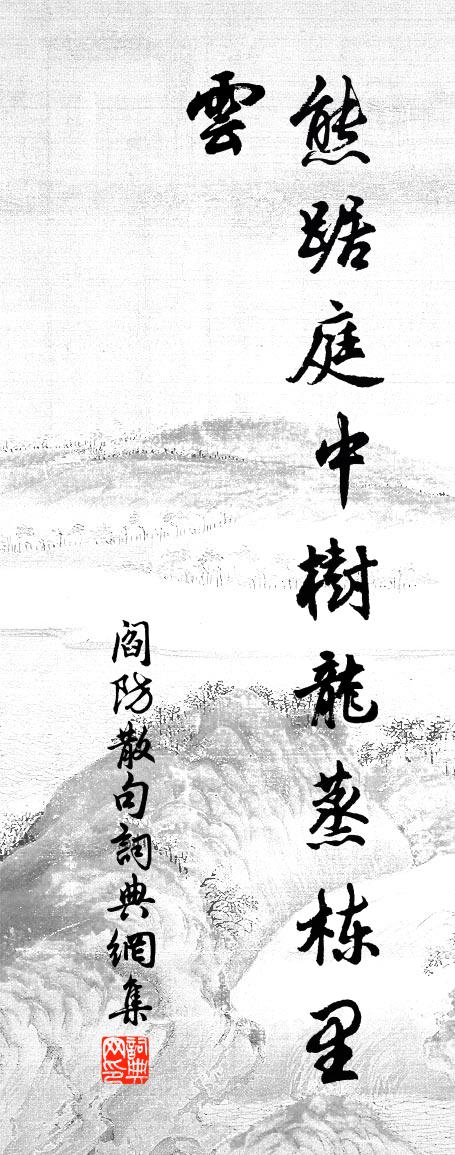 熊踞庭中樹龍蒸栋里
雲
閻防散句詞典網集
詞典网印